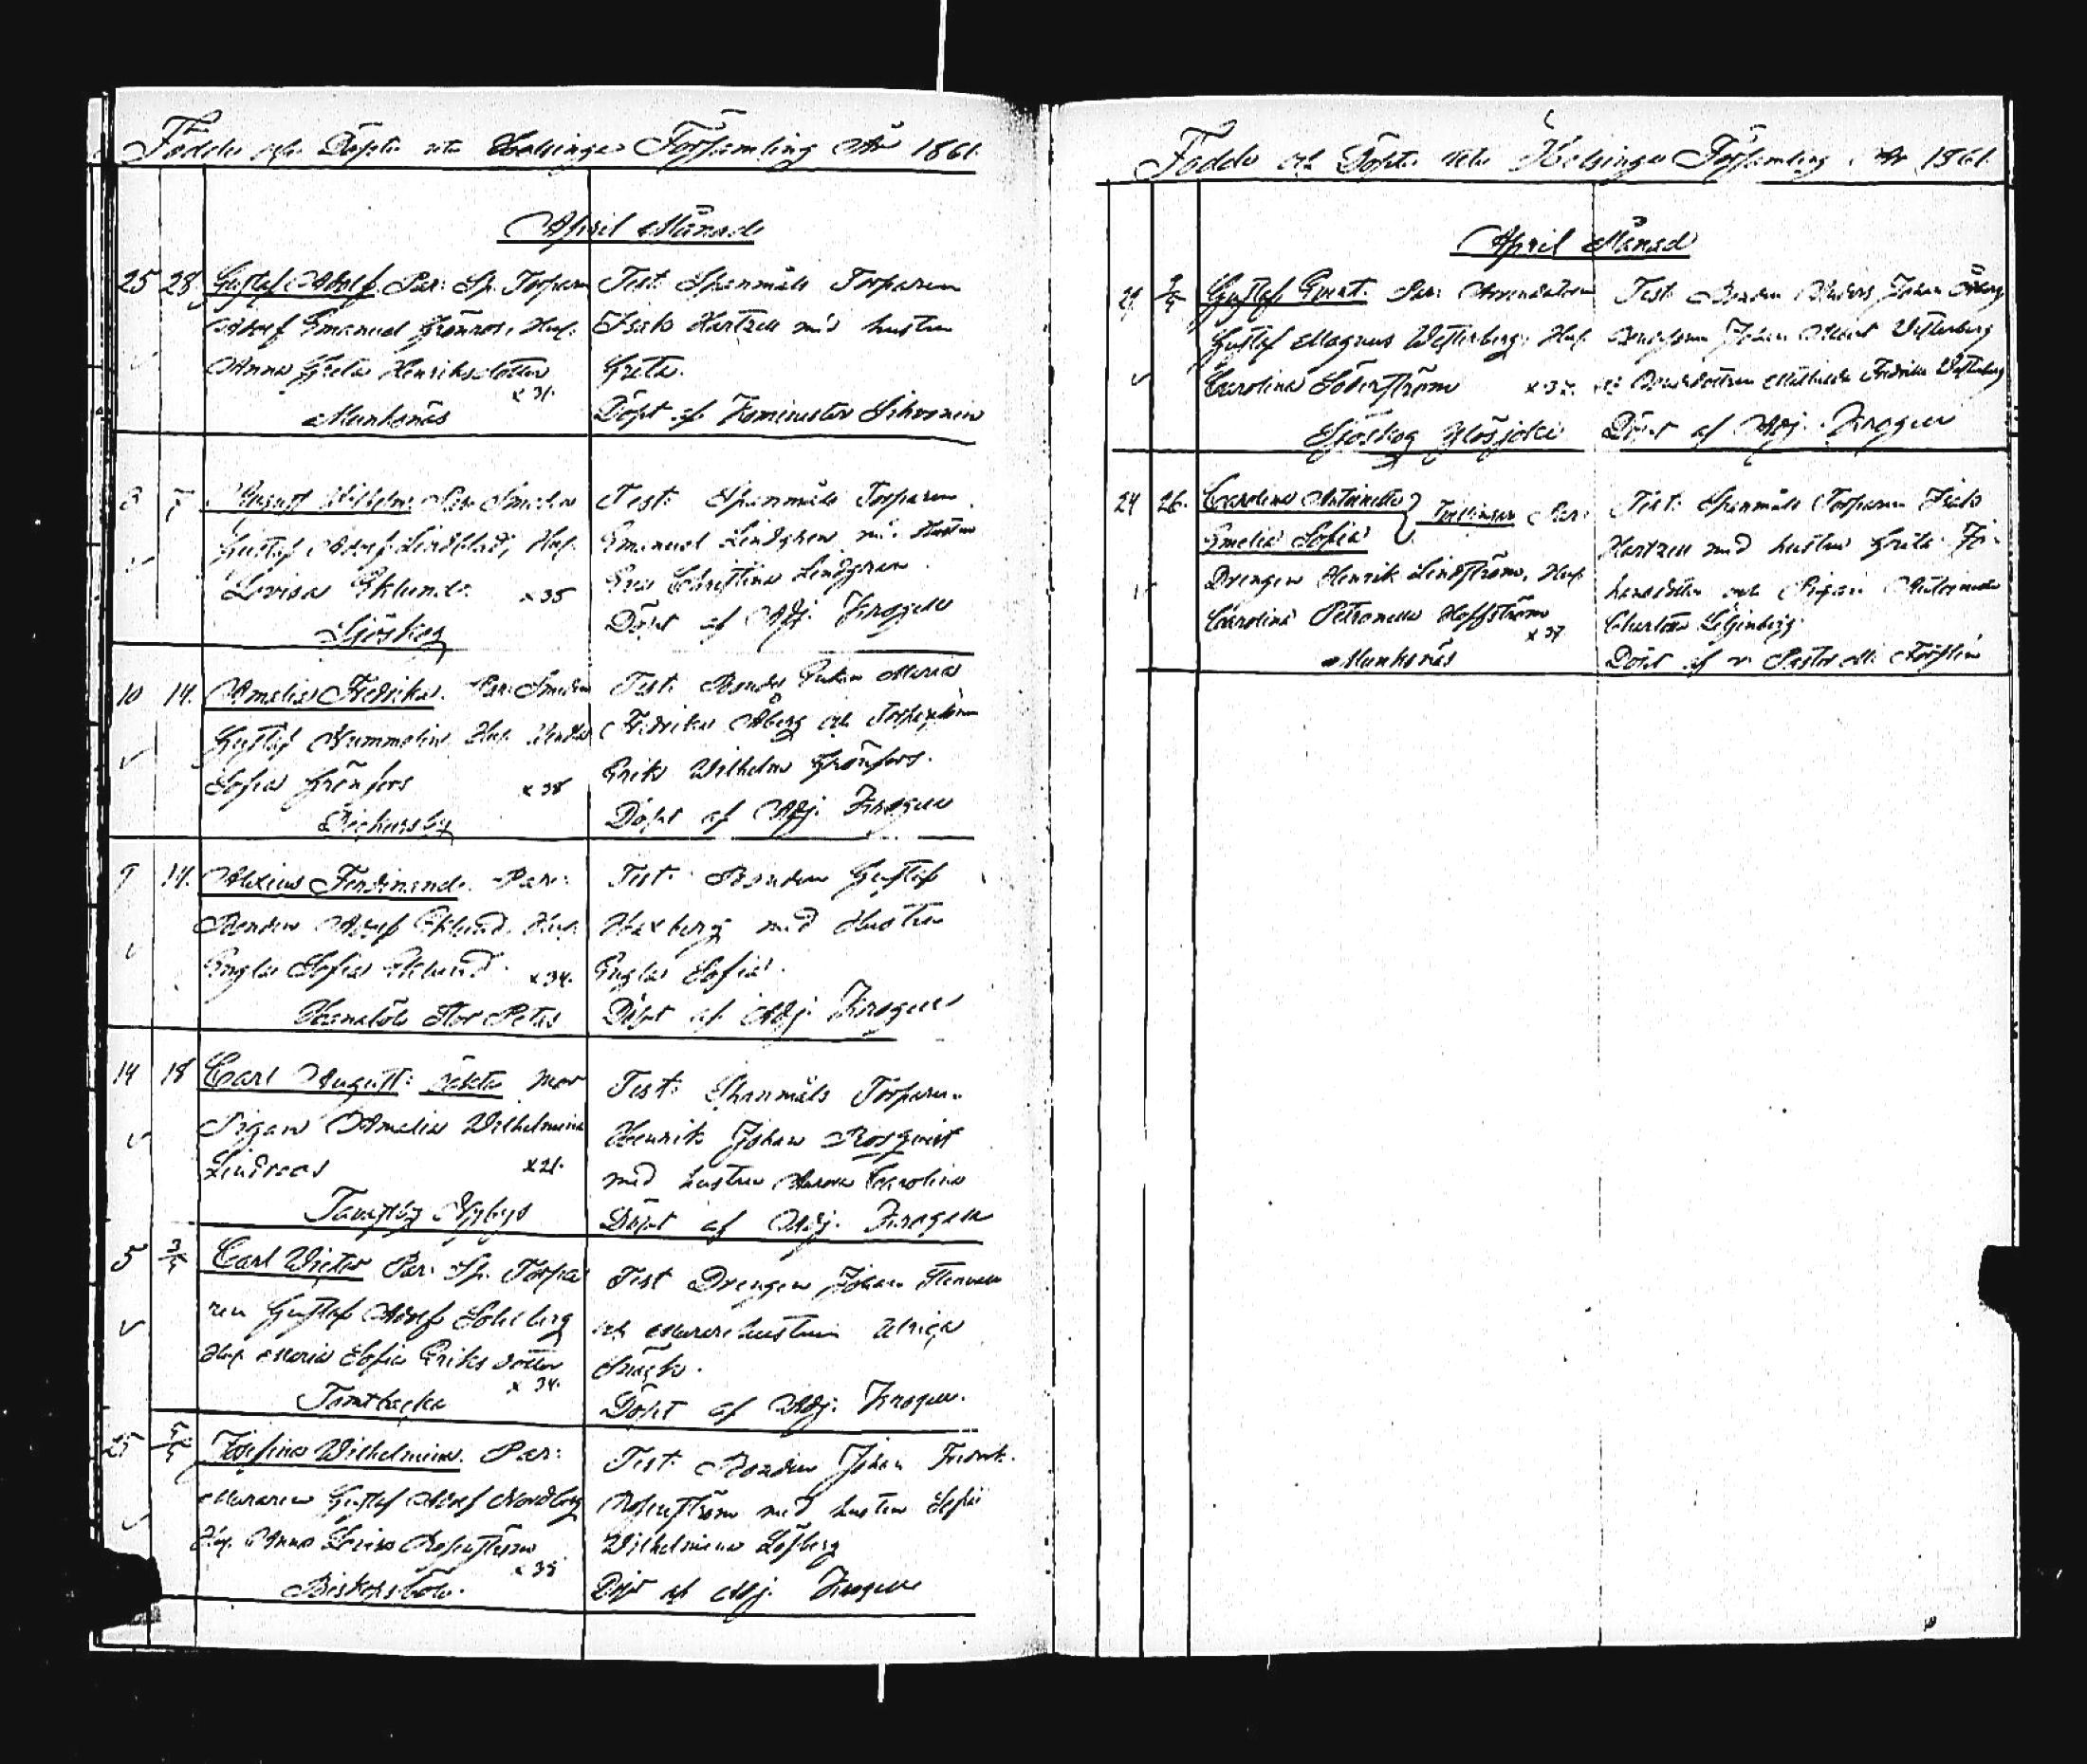 Födde och Döpte uti Helsinge Församling År 1861.
April Månad
25 28. Gustaf Adolf. Par: Sp. Torparn
Adolf Emanuel Grönroos, Hus.
Anna Greta Henriksdotter
x 31.
Munksnäs
Test: Spanmåls Torparen
Isak Hartzell med hustru
Greta.
Döpt af Komminister
3 7 August Wilhelm. Par: Smeden
Gustaf Adolf Lindblad, Hus.
Lovisa Eklund. x 35
Sjöskog
Test: Spanmåls Torparen
Emanuel Lindgren m. Hustru
Eva Christina Lindgren.
Döpt af Adj. Krogell
10 14. Amalia Fredrika. Par: Smeden
Gustaf Hus.
Sofia Grönfors x 38
Dickursby
Test: Bonde Maria
Fredrika Åberg och
Erik Wilhelm Grönfors.
Döpt af Adj. Krogell
9 14. Alexius Ferdinand. Par:
Bonden Adolf Eklund, Hus.
Engla Sofia Eklund. x 34.
Hanaböle Stor Petas
Test: Bonden Gustaf
Haxberg med Hustru
Engla Sofia.
Döpt af Adj. Krogell
14 18 Carl August: oäkta Mor
Pigan Amalia Wilhelmina
Lindroos x 21.
Tavastby
Test: Spanmåls Torparen
Henrik Johan Rosqvist
med hustru Carolina
Döpt af Adj. Krogell
5 3/5 Carl Victor Par: Sp. Torpa
ren Gustaf Adolf Sohlberg
Hus. Maria Sofia Eriksdotter
x 34.
Tomtbacka
Test Drengen Johan
och Murarehustrun Ulrica
Döpt af Adj. Krogell.
25 5/5 Josefina Wilhelmina. Par:
Muraren Gustaf Adolf Nordberg
Hus. Anna Lovisa Rosenström
x 35
Biskopsböle.
Test: Bonden Johan Fredrik
Rosenström med hustru Sofia
Wilhelmina Löfberg
Döpt af Adj. Krogell
Födde och Döpte uti Helsinge Församling År 1861.
April Månad
Gustaf Par: Arrendatorn
Gustaf Magnus Westerberg, Hus.
Carolina Söderström x 32.
Sjöskog
Test: Bonden Anders Johan Öberg
Johan Albert Westerberg
Mathilda Fredrika Westerberg
Döpt af Adj. Krogell
24 26. Carolina Antoinette
Emelia Sofia
Tvillingar Par:
Drengen Henrik Lindström, Hus.
Carolina Petronella Hoffström
x 37.
Munksnäs
Test: Spanmåls Torparen Isak
Hartzell med hustru Greta Jo-
hansdotter och Pigan
Charlotta Liljenberg.
Döpt af v. Pastor